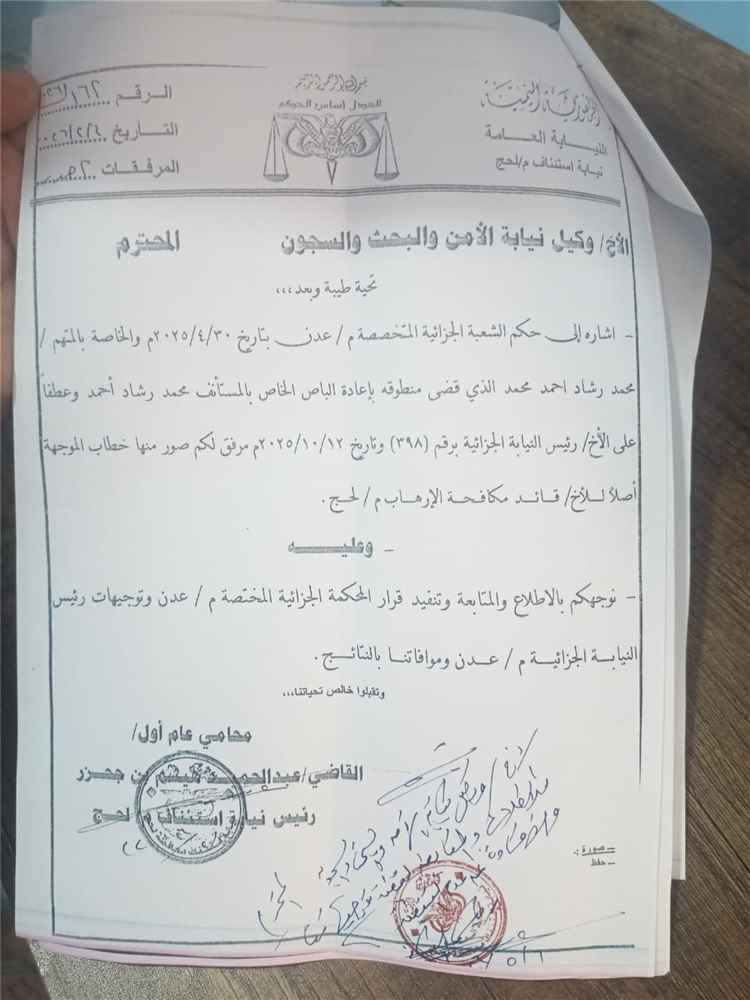 الجمهورية اليمنية
النيابة العامة
نيابة استئناف م/لحج
بسم الله الرحمن الرحيم
العدل أساس الحكم
الرقم ١٦٢
التاريخ ٢/٤/
المرفقات
الأخ/ وكيل نيابة الأمن والبحث والسجون المحترم
تحية طيبة وبعد،،،
- اشاره إلى حكم الشعبة الجزائية المتخصصة م/ عدن بتاريخ ٢٠٢٥/٤/٣٠م والخاصة بالمتهم /
محمد رشاد احمد محمد الذي قضى منطوقه بإعادة الباص الخاص بالمستأنف محمد رشاد أحمد وعطفاً
على الأخ/ رئيس النيابة الجزائية برقم (٣٩٨) وتاريخ ٢٠٢٥/١٠/١٢م مرفق لكم صور منها خطاب الموجهة
أصلاً للأخ/ قائد مكافحة الإرهاب م/ لحج .
- وعليه
- نوجهكم بالاطلاع والمتابعة وتنفيد قرار المحكمة الجزائية المختصة م/ عدن وتوجيهات رئيس
النيابة الجزائية م/ عدن وموافاتنا بالنتائج .
وتقبلوا خالص تحياتنا،،،
محامي عام أول/
القاضي/عبدالحميد هيثم بن جحزر
رئيس نيابة استئناف م/ لحج
- صورة :.
- حفظ